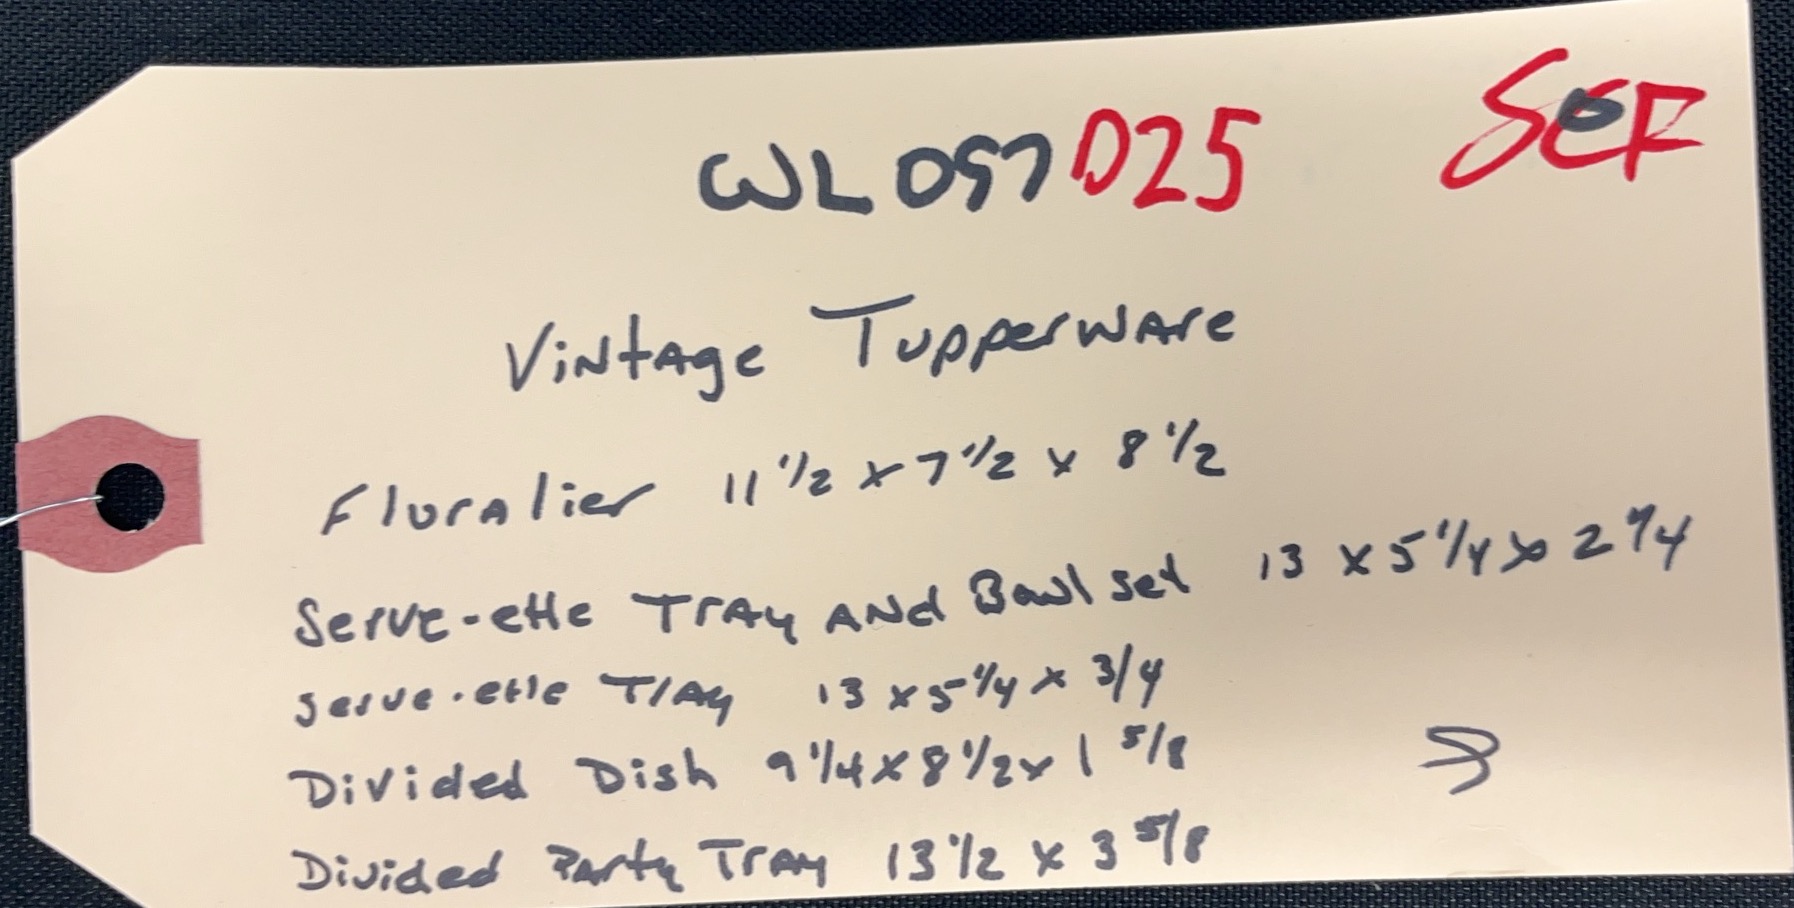 WL097D25 SEF
Vintage Tupperware
Floralier 11 1/2 x 7 1/2 x 8 1/2
Serve-ette Tray And Bowl set 13 x 5 1/4 x 2 1/4
serve-ette Tray 13 x 5 1/4 x 3/4
Divided Dish 9 1/4 x 8 1/2 x 1 5/8
Divided Party Tray 13 1/2 x 3 5/8